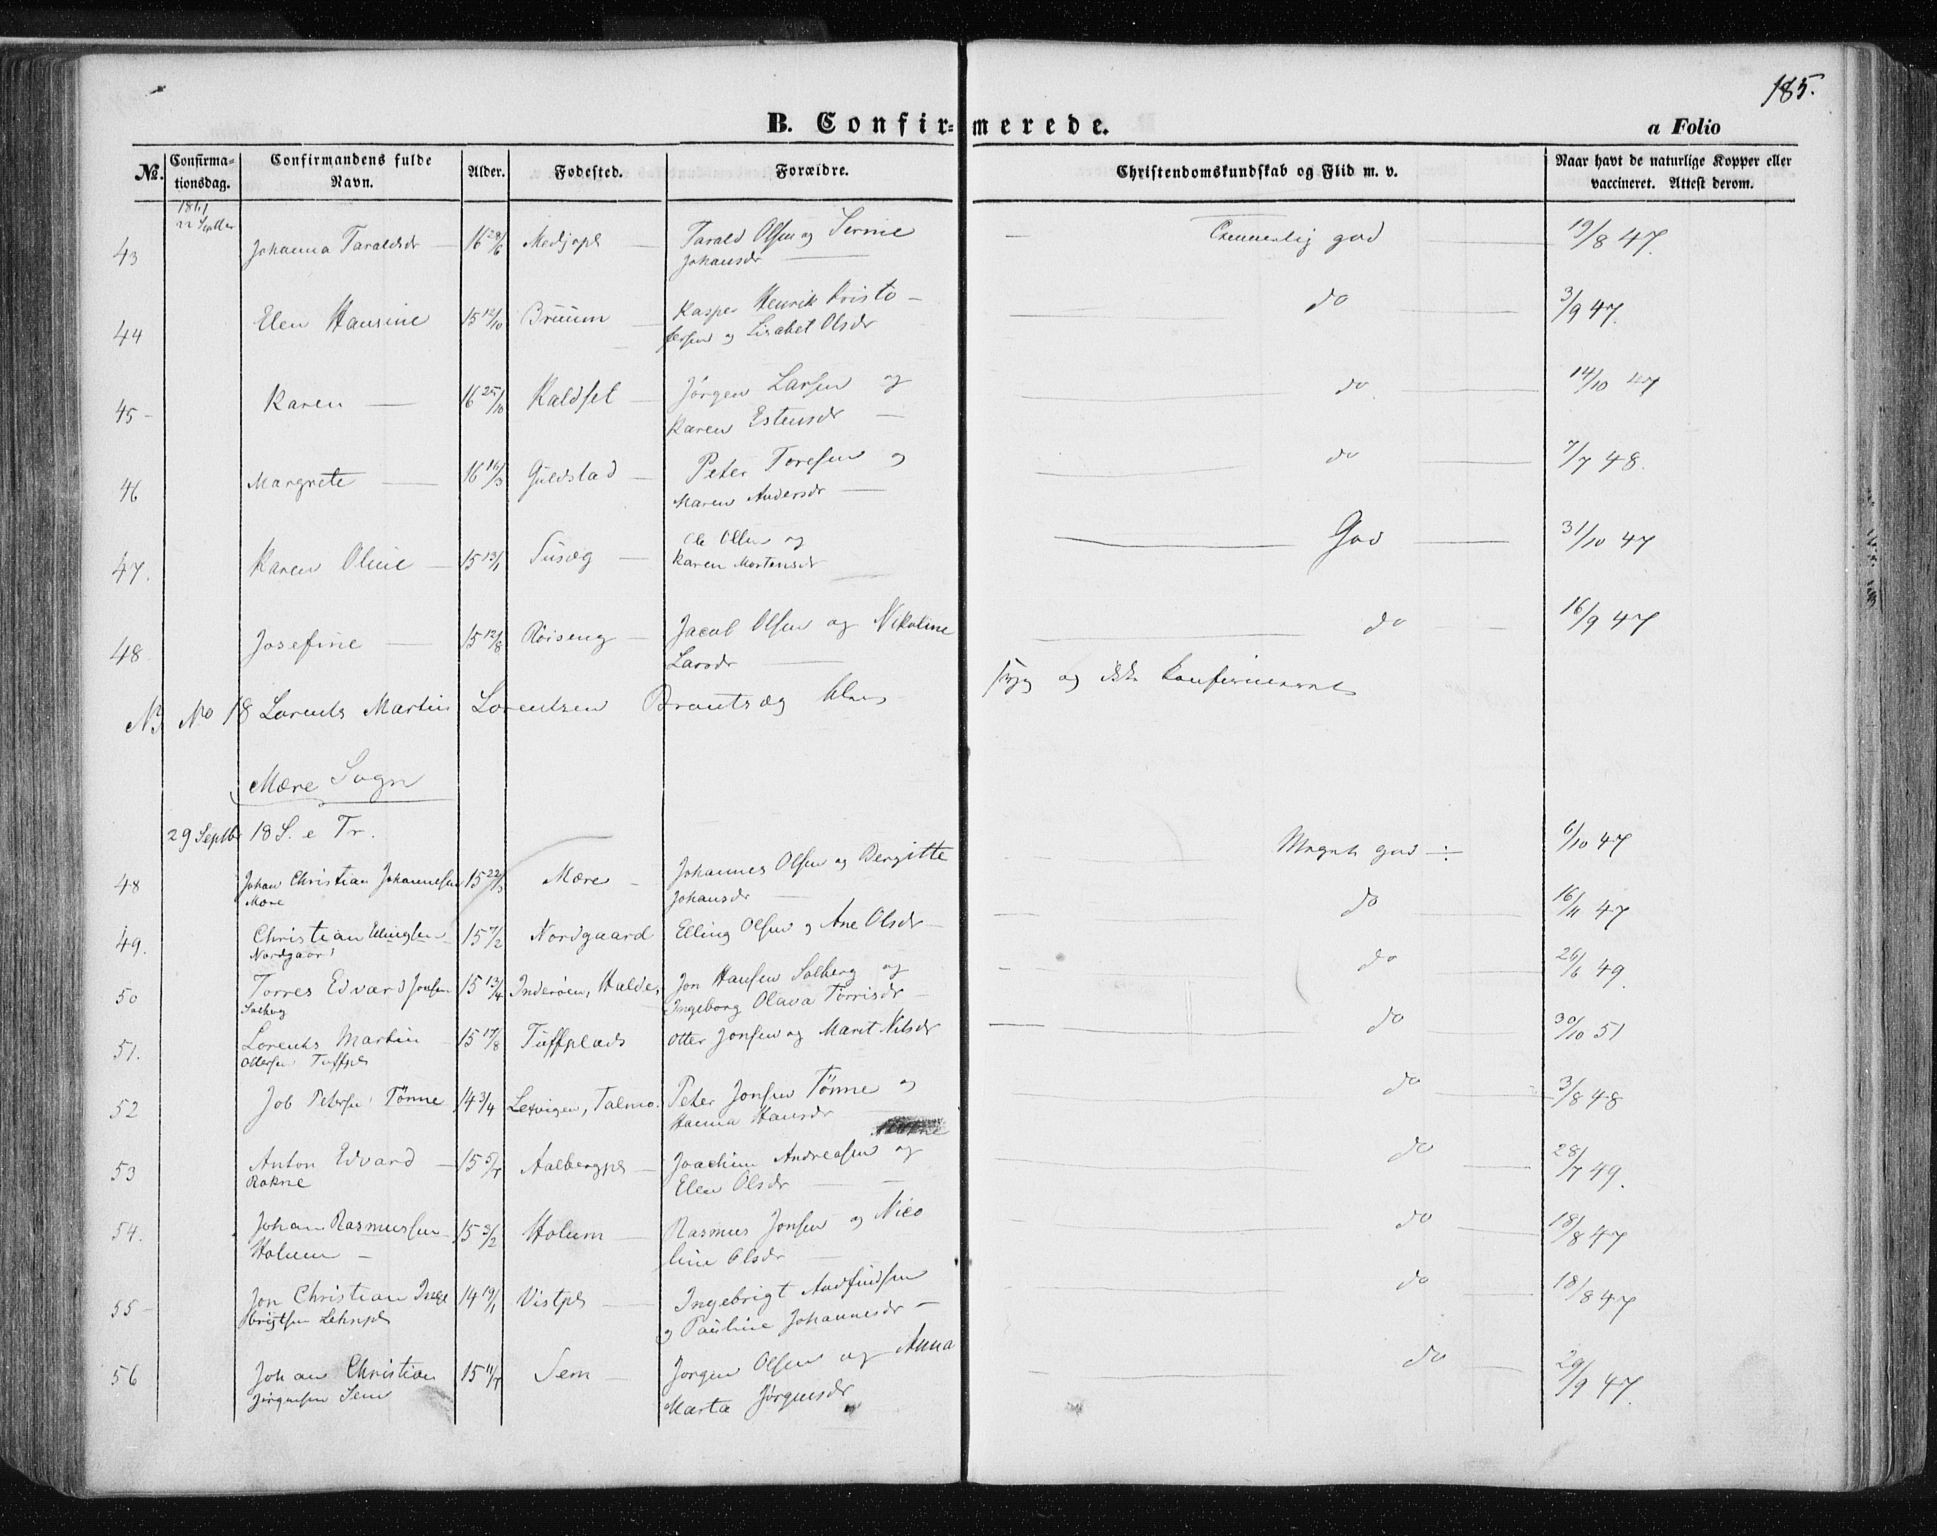 185.
B. Confir=merede.
a Folio
No. Confirma=tionsdag. Confirmandens fulde Navn. Alder. Fødested. Forældre. Christendomskundskab og Flid m. v. Naar havt de naturlige Kopper eller vaccineret. Attest derom.
1861
22 Septbr
43 Johanna Taraldsdr 16 28/6 Medjapl Tarald Olsen og Temmelig god 19/8 47.
Johansdr
44 Elen Hansine 15 12/10 Bruum Kasper Henrik Kristo- do 3/9 47.
fersen og Lisabet Olsdr
45 Karen 16 25/10 Kaldsel Jørgen Larsen og do 14/10 47
Karen Estensdr
46 Margrete 16 16/3 Guldstad Peter Toresen og do 7/7 48.
Maren Andersdr
47. Karen Oline 15 13/1 Tusæg Ole Olsen og God 31/10 47
Karen Mortensdr
48 Josefine 15 12/8 Røiseng Jacob Olsen og Nikoline do 16/9 47
Larsdr
No 18 Lorents Martin Lorentsen syg og ikke konfirmeret
Mære Sogn
29 Septb 18 S. e Tr.
48 Johan Christian Johannesen 15 22/3 Mære Johannes Olsen og Bergitte Meget god 6/10 47
Mære Johansdr
49. Christian Ellingsen 15 7/2 Nordgaard Elling Olsen og Ane Olsdr do 16/11 47
Nordgaard
50 Torres Edvard Jonsen 15 13/4 Inderøen, Halde, Jon Hansen Solberg og do 26/6 49.
Solberg Ingeborg Olava Torrisdr
51. Lorents Martin 15 17/8 Tuffplads Otter Jonsen og Marit Nilsdr do 30/10 51
Ottersen Tuffpl
52 Job Petersen Tønne 14 3/4 Lexvigen, Talmo. Peter Jonsen Tønne og do 3/8 48
Hanna Hansdr
53 Anton Edvard 15 5/7 Aalbergpl Joachim Andreasen og do 28/7 49.
Rokne Elen Olsdr
54. Johan Rasmussen 15 3/2 Holum Rasmus Jonsen og Nico do 18/8 47
Holum line Olsdr
55 Jon Christian Inge 14 19/1 Vistpl Ingebrigt Andfindsen do 18/8 47
brigtsen Lehnpl og Pauline Johannesdr
56 Johan Christian 15 11/7 Sem Jørgen Olsen og Anna do 29/9 47.
Jørgensen Sem Marta Jørgensdr